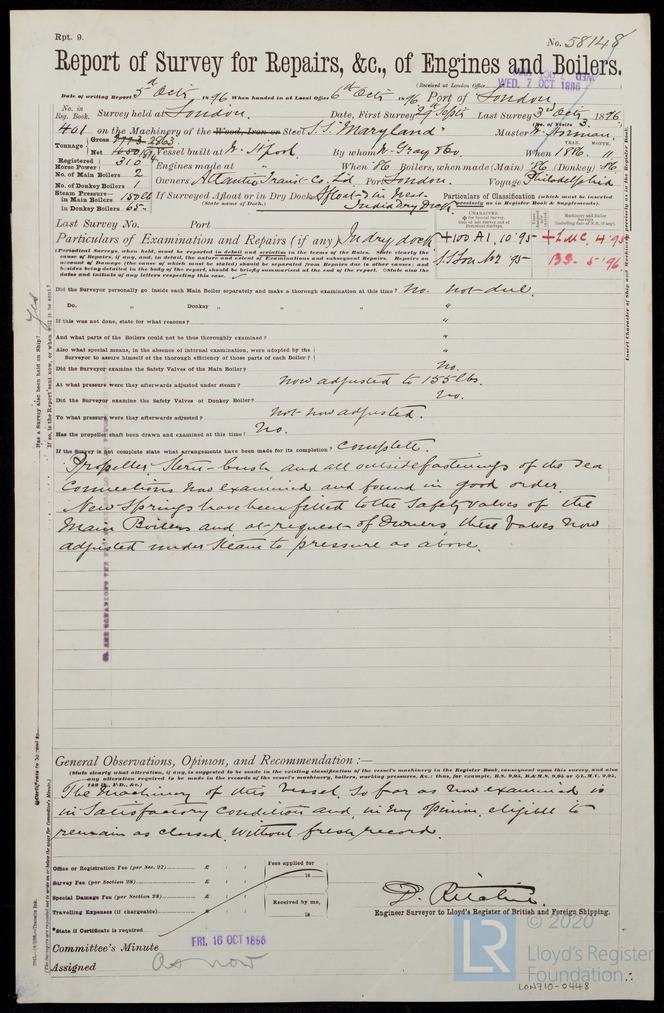 Rpt. 9.
No. 58148
Report of Survey for Repairs, &c., of Engines and Boilers.
(Received at London Office WED. 7 OCT 1896
Date of writing Report 5th Octr 1896 When handed in at Local Office 6th Octr 1896 Port of London
No. in Reg. Book. Survey held at London. Date, First Survey 29th Septr Last Survey 3rd Octr 1896
(No. of Visits 3)
401 on the Machinery of the Wood, Iron or Steel S.S. "Maryland" Master Norman
Tonnage Gross 2863
Net
Vessel built at W. Hpool By whom W. Gray & Co. When 1886. 11
YEAR. MONTH.
Registered Horse Power 310 Engines made at " When '86 Boilers, when made (Main) '86 (Donkey) '86
No. of Main Boilers 2
No. of Donkey Boilers 1 Owners Atlantic Transt. Co. Ld. Port London. Voyage Philadelphia
Steam Pressure—
in Main Boilers 150 lb
in Donkey Boilers 65
If Surveyed Afloat or in Dry Dock Afloat & in West India Dry Dock.
(State name of Dock.)
Particulars of Classification (which must be inserted precisely as in Register Book & Supplements).
Last Survey No. Port
Particulars of Examination and Repairs (if any) In dry dock
+100 A1 10.95 +LMC 4.95
S.S. Lon No 2 95 BS 5.96
(Periodical Surveys, when held, must be reported in detail and seriatim in the terms of the Rules. State clearly the
cause of Repairs, if any, and, in detail, the nature and extent of Examinations and subsequent Repairs. Repairs on
account of Damage (the cause of which must be stated) should be separated from Repairs due to other causes; and
besides being detailed in the body of the report, should be briefly summarised at the end of the report. State also the
dates and initials of any letters respecting this case.
Did the Surveyor personally go inside each Main Boiler separately and make a thorough examination at this time? No. not due.
Do. " Donkey " " " "
If this was not done, state for what reasons? "
And what parts of the Boilers could not be thus thoroughly examined? "
Also what special means, in the absence of internal examination, were adopted by the
Surveyor to assure himself of the thorough efficiency of those parts of each Boiler? "
Did the Surveyor examine the Safety Valves of the Main Boiler? No.
At what pressure were they afterwards adjusted under steam? now adjusted to 155 lbs.
Did the Surveyor examine the Safety Valves of Donkey Boiler? No.
To what pressure were they afterwards adjusted? not now adjusted.
Has the propeller shaft been drawn and examined at this time? No.
If the Survey is not complete state what arrangements have been made for its completion? Complete.
Propeller, Stern-bush and all outside fastenings of the Sea
Connections now examined and found in good order.
New Springs have been fitted to the Safety Valves of the
Main Boilers and at request of Owners these Valves now
adjusted under steam to pressure as above.
General Observations, Opinion, and Recommendation :—
(State clearly what alteration, if any, is suggested to be made in the existing classification of the vessel's machinery in the Register Book, consequent upon this survey, and also
any alteration required to be made in the records of the vessel's machinery, boilers, working pressures, &c.: thus, for example, B.S. 9,95, B.&M.S. 9,95 or +L.M.C. 9,95,
140 lb., F.D., &c.)
The Machinery of this Vessel, so far as now examined is
in Satisfactory condition and, in my opinion, eligible to
remain as classed. Without fresh record.
Office or Registration Fee (per Sec. 27) £
Survey Fee (per Section 28) £
Special Damage Fee (per Section 28) £
Travelling Expenses (if chargeable) £
Fees applied for
18
Received by me,
18
*State if Certificate is required
D. Ritchie
Engineer Surveyor to Lloyd's Register of British and Foreign Shipping.
Committee's Minute FRI. 16 OCT 1896
Assigned As now
LR
© 2020
Lloyd's Register
Foundation
LON710-0448